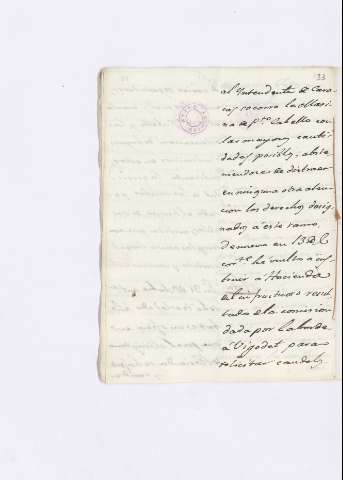 33
al Intendente de Cara-
cas socorra la Mari-
na de Pto. Cabello con
las mayores canti-
dades posibles, abste-
niendose de distraer
en ninguna otra aten-
cion los derechos desig-
nados a este ramo,
De nuevo en 13 de
corte. he vuelto a ins-
truir a Hacienda
del infructuoso resul-
tado de la comision
dada por Laborde
a Vigodet para
solicitar caudales